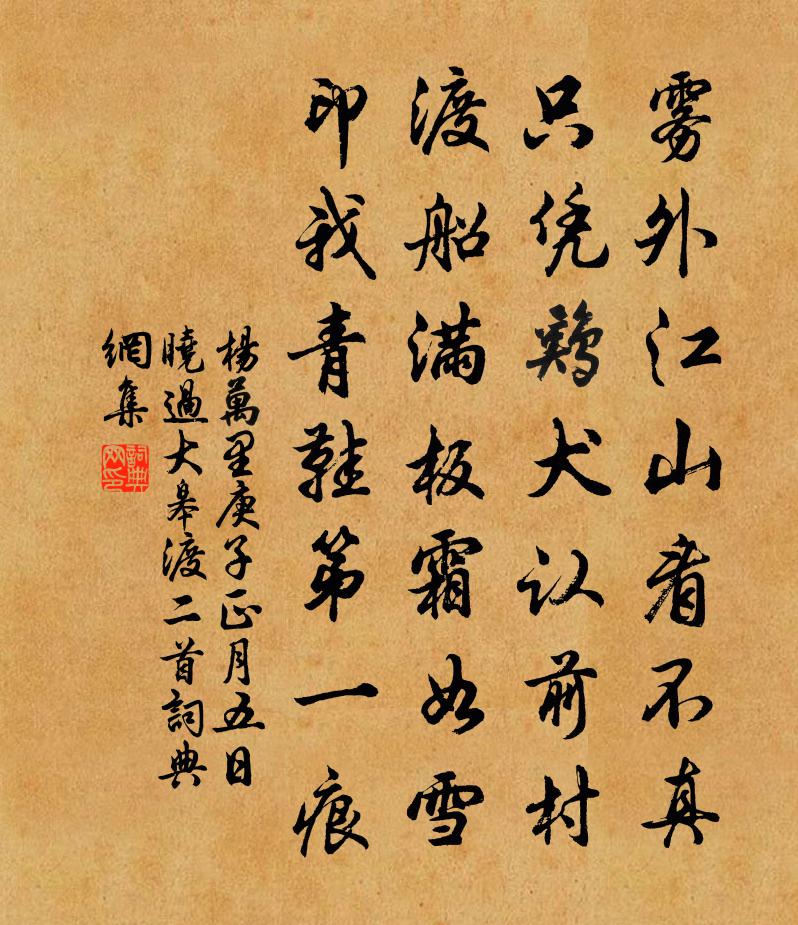 雾外江山看不真
只凭鷄犬认前村
渡船满板霜如雪
印我青鞋第一痕
楊萬里庚子正月五日
曉過大皋渡二首詞典
網集
詞典
网印